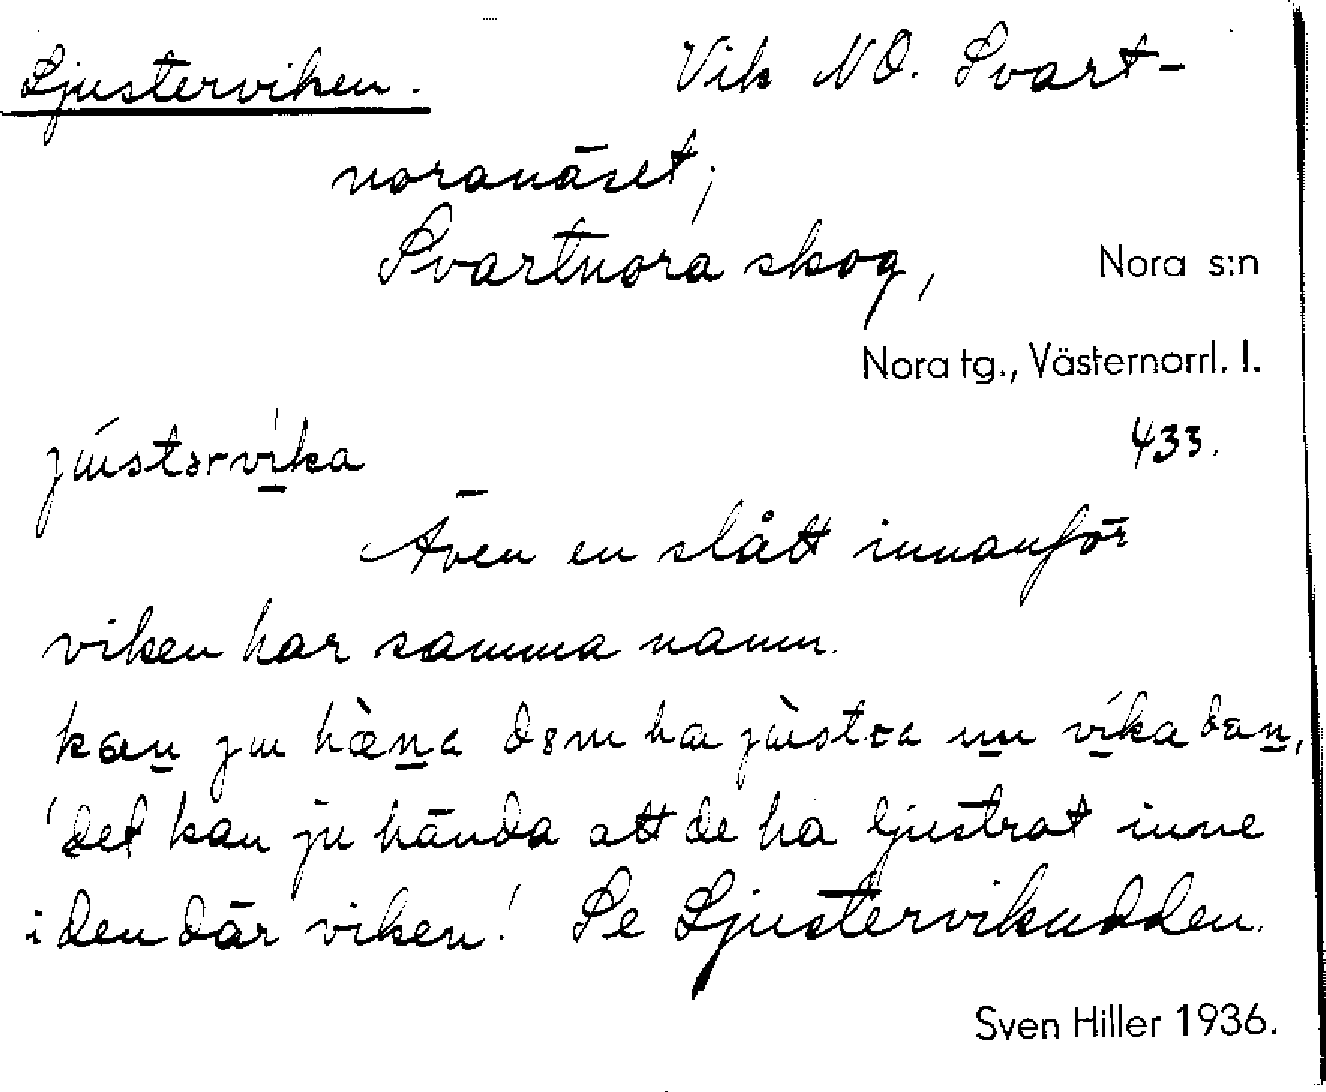 Ljusterviken. Vik NO. Svart-
noranäset;
Svartnora skog,
Nora s:n
Nora tg., Västernorrl. l.
433.
Även en slått innanför
viken har samma namn.
'det kan ju hända att de ha ljustrat inne
i den där viken! Se Ljustervikudden.
Sven Hiller 1936.